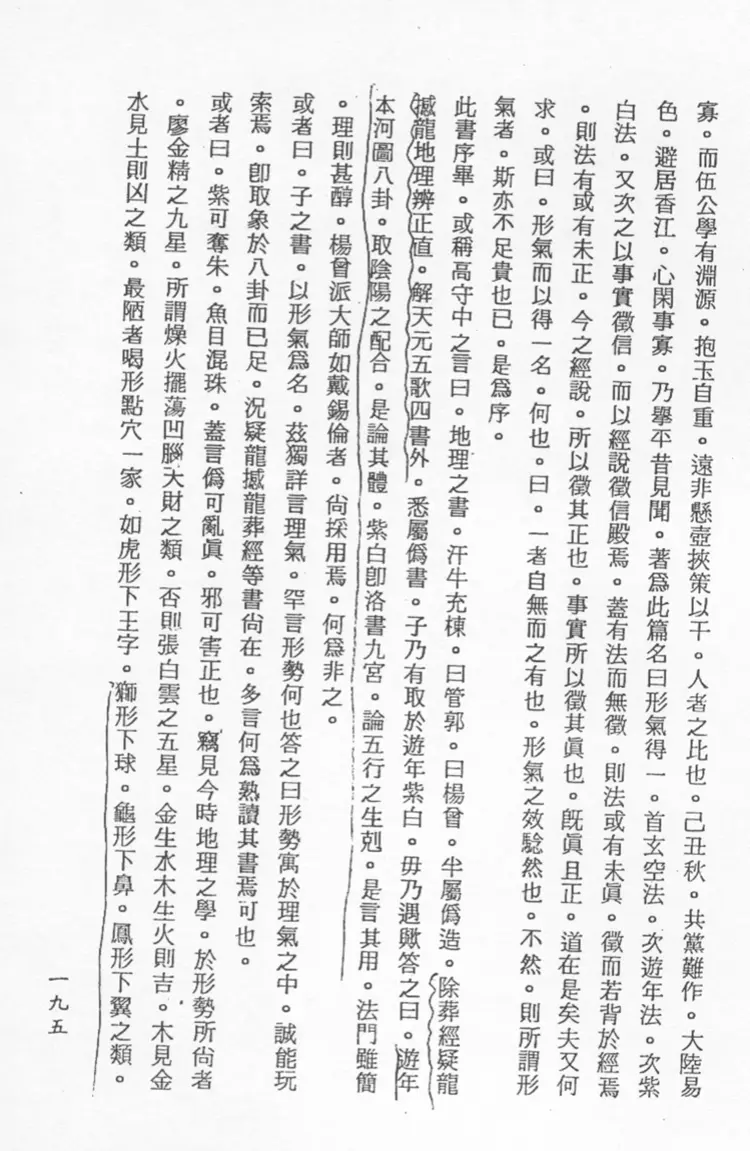 寡。而伍公學有淵源。抱玉自重。遠非懸壺挾策以干。人者之比也。己丑秋。共黨難作。大陸易
色。避居香江。心閑事寡。乃舉平昔見聞。著為此篇名曰形氣得一。首玄空法。次遊年法。次紫
白法。又次之以事實徵信。而以經說徵信殿焉。蓋有法而無徵。則法或有未真。徵而若背於經焉
。則法有或有未正。今之經說。所以徵其正也。事實所以徵其眞也。既眞且正。道在是矣夫又何
求。或曰。形氣而以得一名。何也。曰。一者自無而之有也。形氣之效騐然也。不然。則所謂形
氣者。斯亦不足貴也已。是爲序。
此書序畢。或稱高守中之言曰。地理之書。汗牛充棟。曰管郭。曰楊曾。半屬僞造。除葬經疑龍
撼龍地理辨正直。解天元五歌四書外。悉屬僞書。子乃有取於遊年紫白。毋乃過歟答之曰。遊年
本河圖八卦。取陰陽之配合。是論其體。紫白卽洛書九宮。論五行之生剋。是言其用。法門雖簡
。理則甚醇。楊曾派大師如戴錫倫者。尙採用焉。何爲非之。
或者曰。子之書。以形氣爲名。茲獨詳言理氣。罕言形勢何也答之曰形勢寓於理氣之中。誠能玩
索焉。卽取象於八卦而已足。況疑龍撼龍葬經等書尙在。多言何爲熟讀其書焉可也。
或者曰。紫可奪朱。魚目混珠。蓋言僞可亂眞。邪可害正也。竊見今時地理之學。於形勢所尙者
。廖金精之九星。所謂燥火擺蕩凹腦天財之類。否則張白雲之五星。金生水木生火則吉。木見金
水見土則凶之類。最陋者喝形點穴一家。如虎形下王字。獅形下球。龜形下鼻。鳳形下翼之類。
一九五